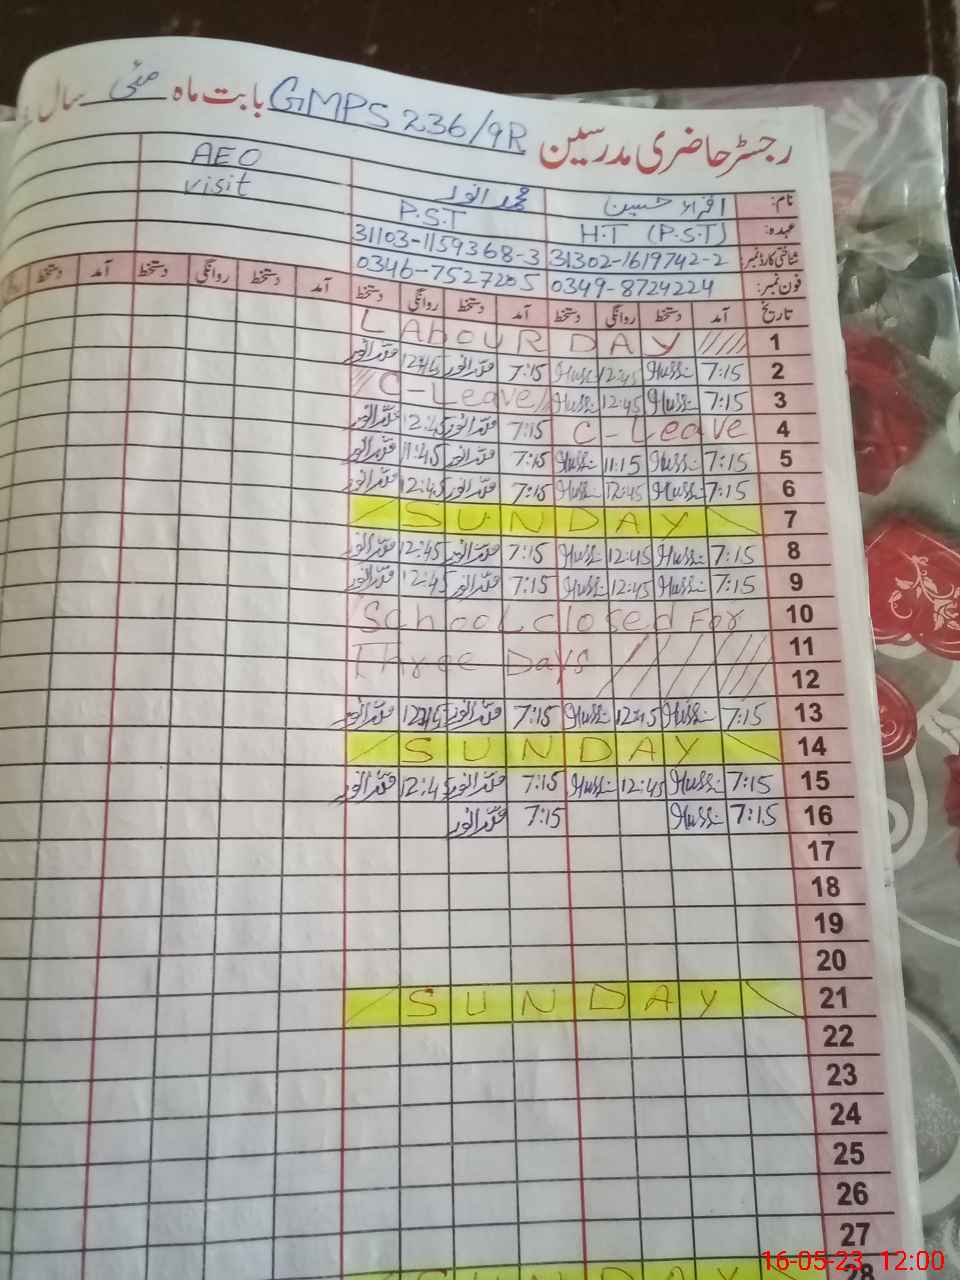 رجسٹر حاضری مدرسین GMPS 236/9R بابت ماہ مئی سال
نام: اقراء حسین محمد انور AEO
عہدہ: H.T (P.S.T) P.S.T visit
شناختی کارڈ نمبر: 31302-1619742-2 31103-1159368-3
فون نمبر: 0349-8724224 0346-7527205
تاریخ آمد دستخط روانگی دستخط آمد دستخط روانگی دستخط آمد دستخط روانگی دستخط آمد دستخط
1 LAbOUR DAY
2 7:15 Huss 12:45 Huss 7:15 محمد انور 12:45 محمد انور
3 7:15 Huss 12:45 Huss C-Leave
4 C-Leave 7:15 محمد انور 12:45 محمد انور
5 7:15 Huss 11:15 Huss 7:15 محمد انور 11:45 محمد انور
6 7:15 Huss 12:45 Huss 7:15 محمد انور 12:45 محمد انور
7 SUNDAY
8 7:15 Huss 12:45 Huss 7:15 محمد انور 12:45 محمد انور
9 7:15 Huss 12:45 Huss 7:15 محمد انور 12:45 محمد انور
10 School closed For
11 Three Days
12
13 7:15 Huss 12:45 Huss 7:15 محمد انور 12:45 محمد انور
14 SUNDAY
15 7:15 Huss 12:45 Huss 7:15 محمد انور 12:45 محمد انور
16 7:15 Huss 7:15 محمد انور
17
18
19
20
21 SUNDAY
22
23
24
25
26
27
28 SUNDAY
16-05-23 12:00